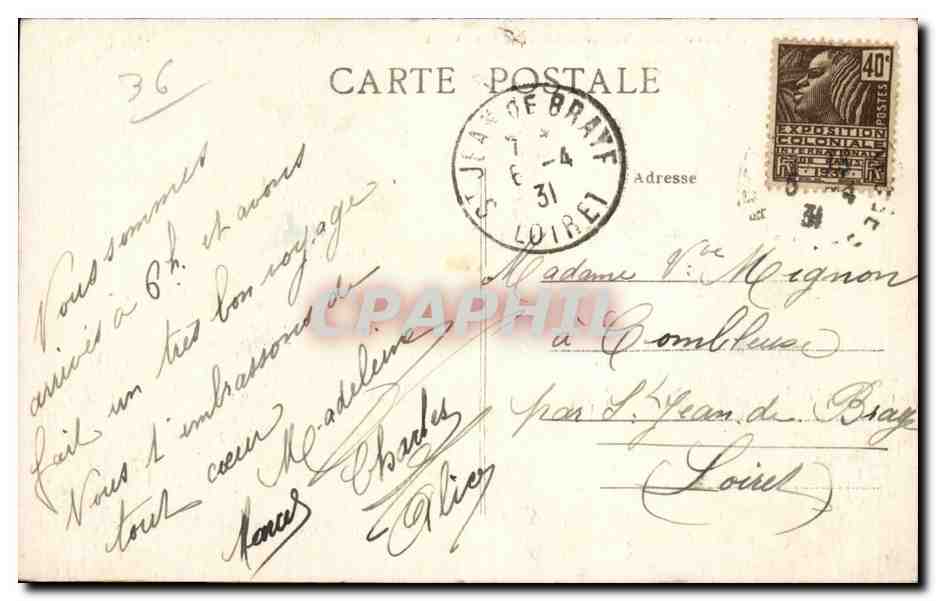 36
CARTE POSTALE
40c
POSTES
EXPOSITION
COLONIALE
INTERNATIONALE
DE PARIS
1931
ST JEAN DE BRAYE
6 -4
31
LOIRET
31
Adresse
Nous sommes
arrivés à 6h. et avons
fait un très bon voyage.
Nous t'embrassons de
tout cœur Madeleine
Charles
Marcel
Alice
Madame Vve Mignon
à Combleux
par St Jean de Braye
(Loiret)
CPAPHIL